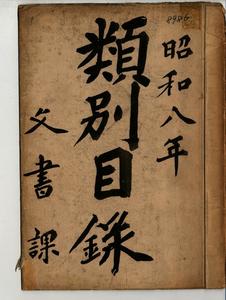 8986
昭和八年
類別目錄
文書課